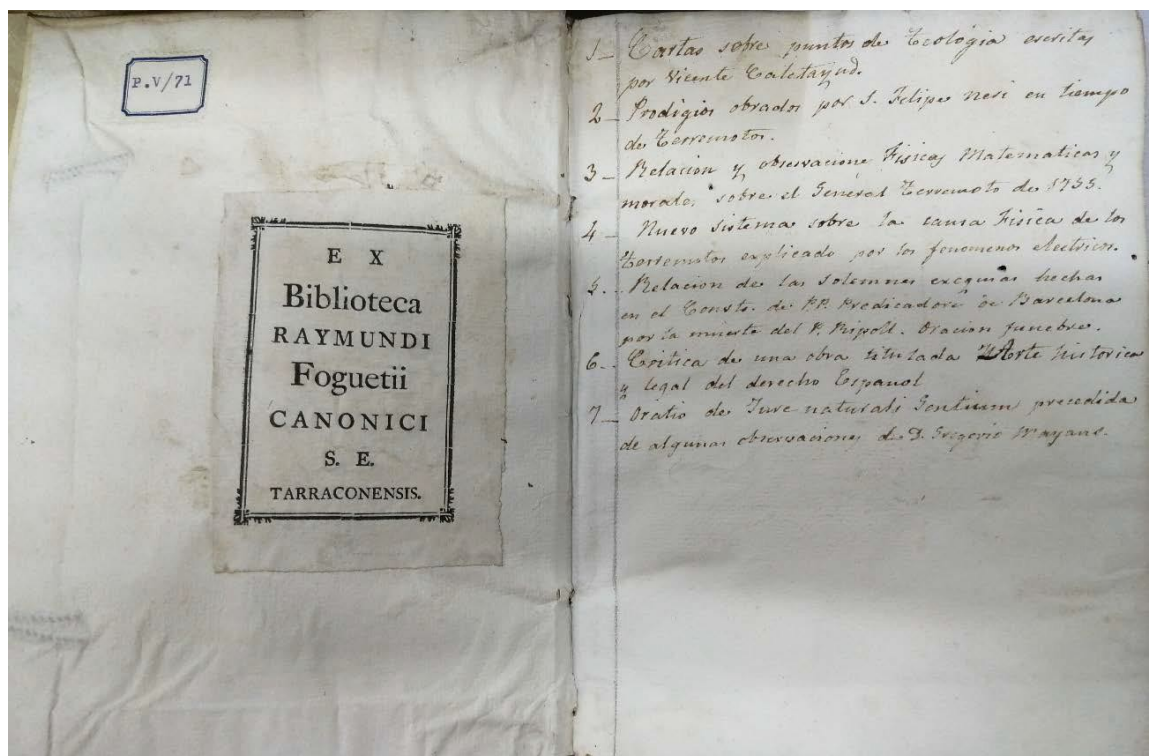 P.V/71
EX
Biblioteca
RAYMUNDI
Foguetii
CANONICI
S. E.
TARRACONENSIS.
1_ Cartas sobre puntos de Teologia escritas
por Vicente Calatayud.
2_ Prodigios obrados por S. Felipe Neri en tiempo
de Terremotos.
3_ Relacion y observacione Fisicas Matematicas y
morales, sobre el General Terremoto de 1755.
4_ Nuevo sistema sobre la causa Fisica de los
Terremotos explicado por los fenomenos electricos.
5_ Relacion de las solemnes exequias hechas
en el Conto. de PP. Predicadore de Barcelona
por la muerte del P. Ripoll. Oracion funebre.
6_ Critica de una obra titulada Arte historica
y legal del derecho Español
7_ Oratio de Jure naturali Gentium precedida
de algunas observaciones de D. Gregorio Mayans.